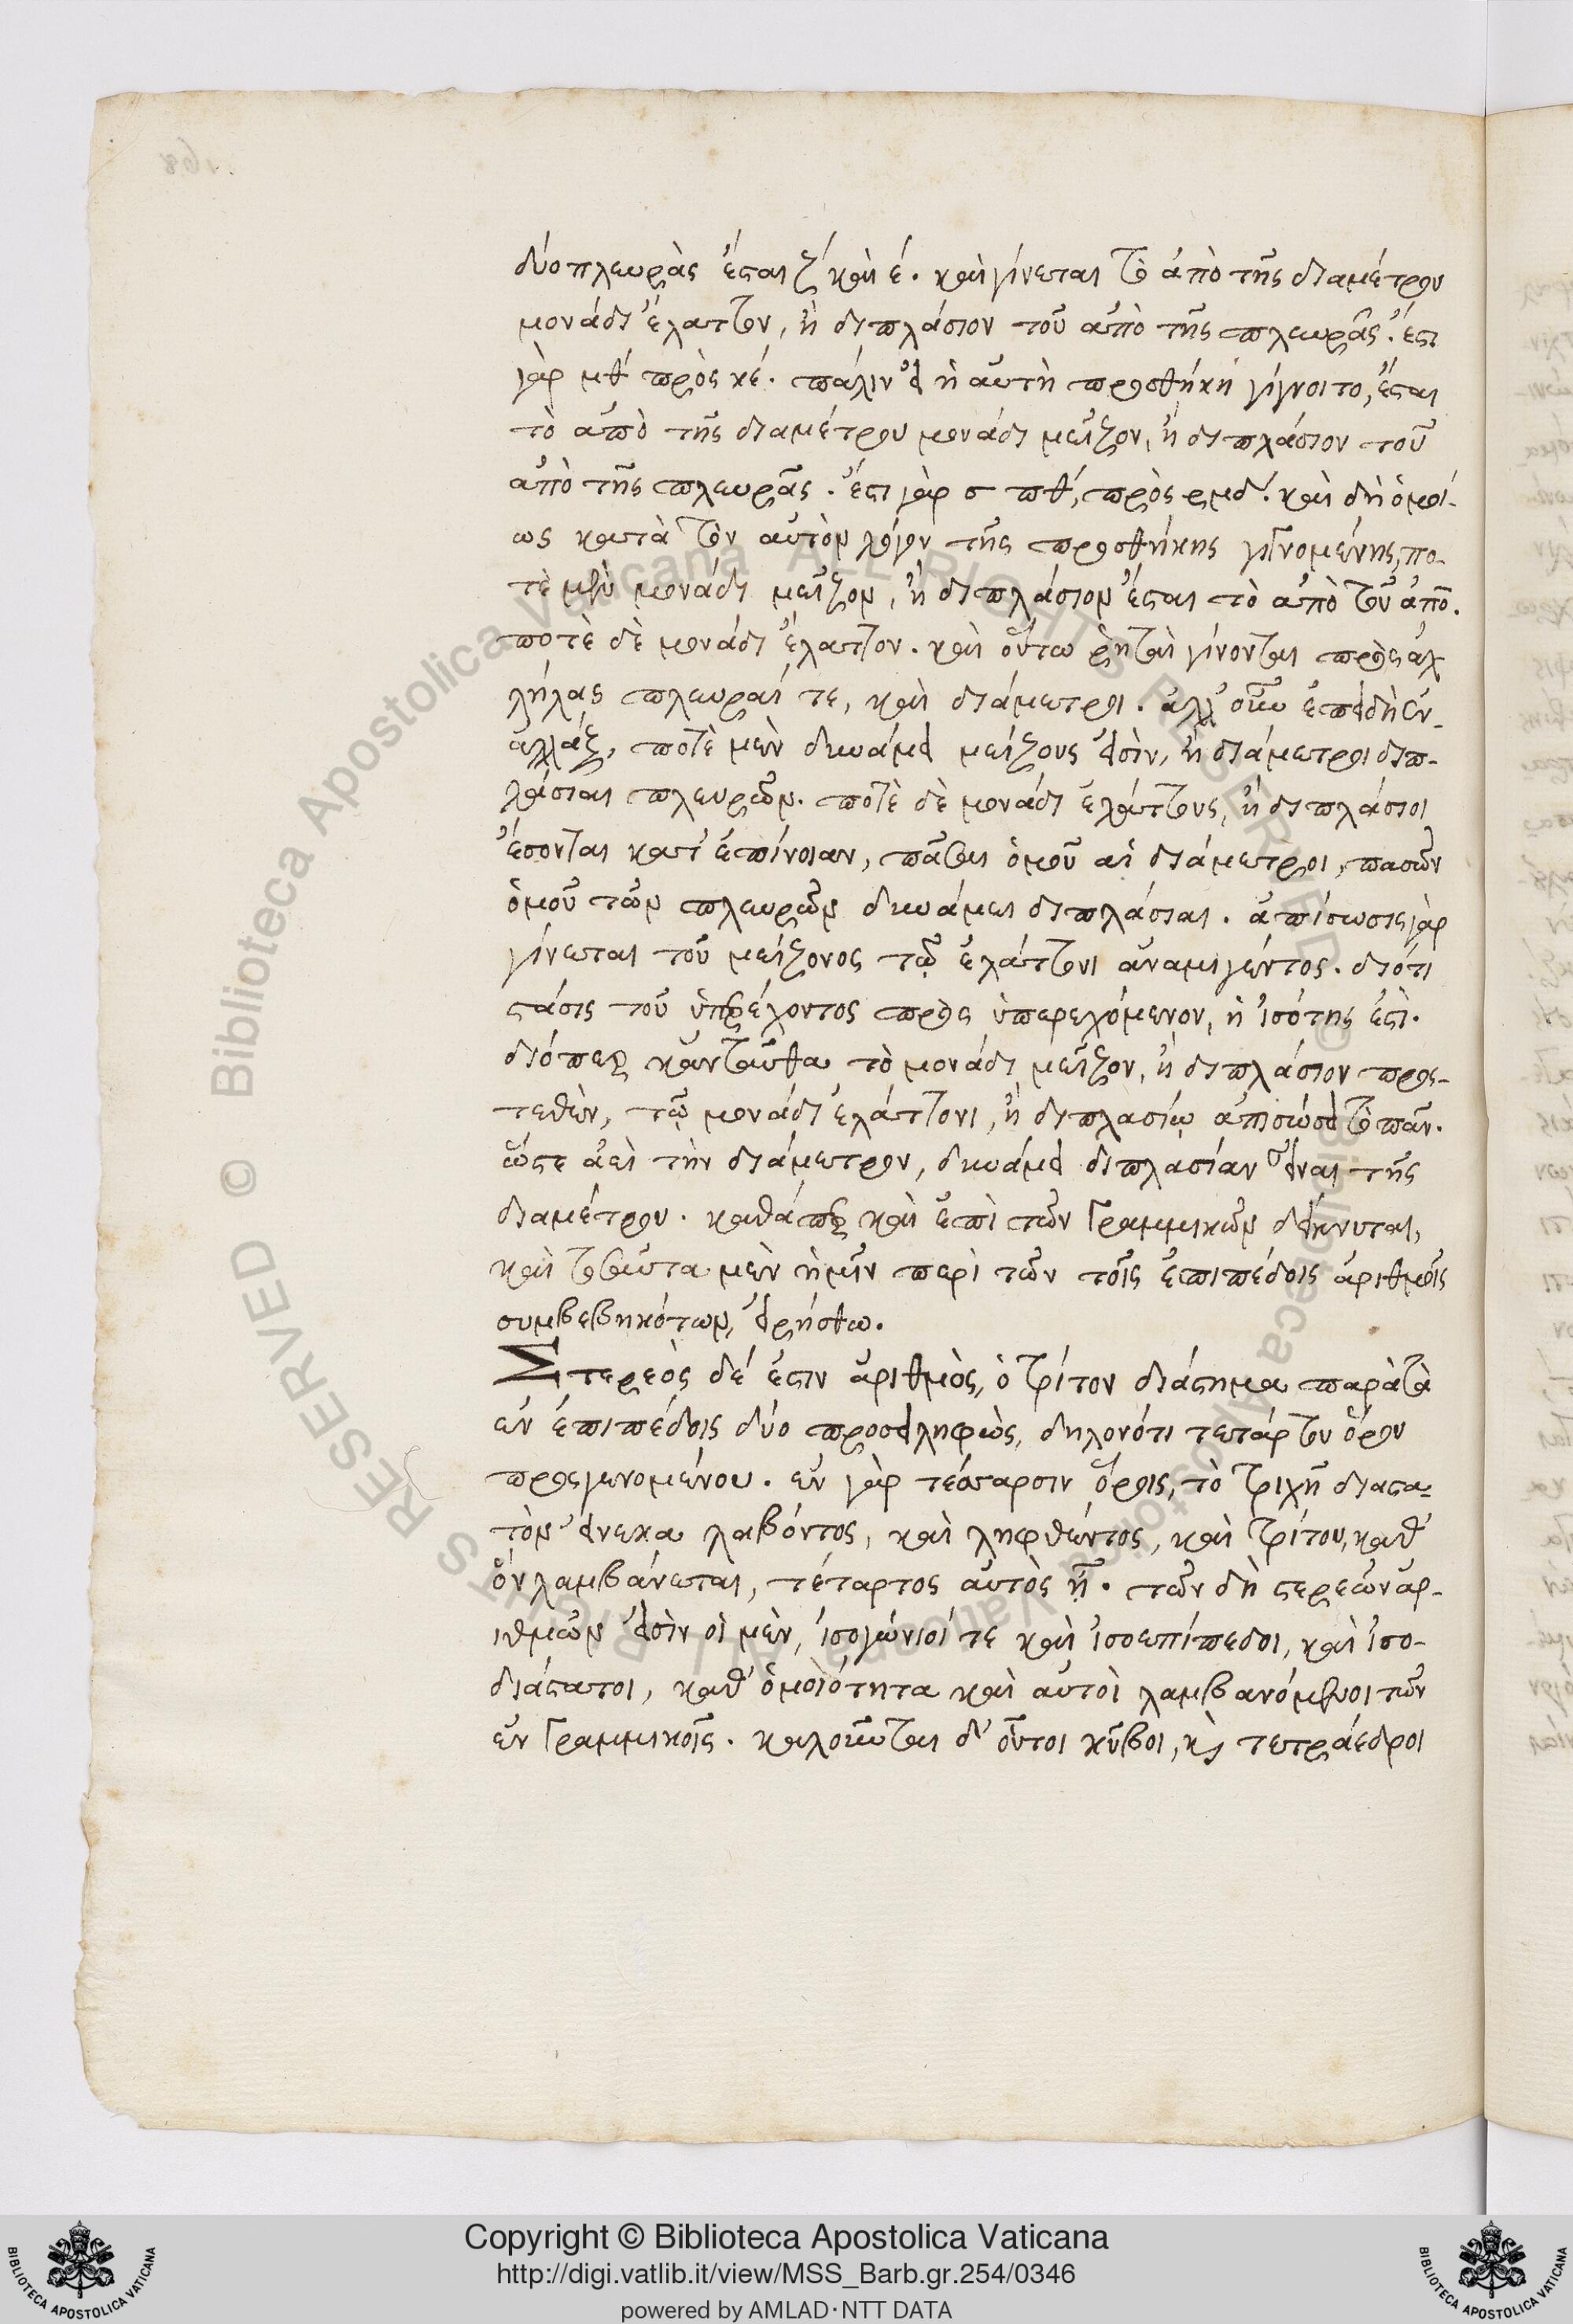 168
δύο πλευρὰς ἔσται ζ́ καὶ έ. καὶ γίνεται τὸ ἀπὸ τῆς διαμέτρου
μονάδι ἔλαττον, ἢ διπλάσιον τοῦ ἀπὸ τῆς πλευρᾶς. ἔστι
γὰρ μθ́ πρὸς κέ. πάλιν εἰ ἡ αὐτὴ προσθήκη γίγνοιτο, ἔσται
τὸ ἀπὸ τῆς διαμέτρου μονάδι μεῖζον, ἢ διπλάσιον τοῦ
ἀπὸ τῆς πλευρᾶς. ἔστι γὰρ σπθ́, πρὸς ρμδ́. καὶ δὴ ὁμοί-
ως κατὰ τὸν αὐτὸν λόγον τῆς προσθήκης γιγνομένης, πο-
τὲ μὲν μονάδι μεῖζον, ἢ διπλάσιον ἔσται τὸ ἀπὸ τοῦ ἀπὸ.
ποτὲ δὲ μονάδι ἔλαττον. καὶ οὕτω ῥηταὶ γίνονται πρὸς ἀλ
λήλας πλευραί τε, καὶ διάμετροι. ἀλλ' οὖν ἐπειδὴ ἐν-
αλλὰξ, ποτὲ μὲν δυνάμει μείζους εἰσὶν, ἢ διάμετροι διπ-
λάσιαι πλευρῶν. ποτὲ δὲ μονάδι ἐλάττους, ἢ διπλάσιοι
ἔσονται κατ' ἐπίνοιαν, πᾶσαι ὁμοῦ αἱ διάμετροι, πασῶν
ὁμοῦ τῶν πλευρῶν δυνάμει διπλάσιαι. ἀπίσωσις γὰρ
γίνεται τοῦ μείζονος τῷ ἐλάττονι ἀναμιγέντος. διότι
στάσις τοῦ ὑπερέχοντος πρὸς ὑπερεχόμενον, ἡ ἰσότης ἐστὶ.
διόπερ κἀνταῦθα τὸ μονάδι μεῖζον, ἢ διπλάσιον προς-
τεθὲν, τῷ μονάδι ἐλάττονι, ἢ διπλασίῳ ἀπισώσει τὸ πᾶν.
ὥστε ἀεὶ τὴν διάμετρον, δυνάμει διπλασίαν εἶναι τῆς
διαμέτρου. καθάπερ καὶ ἐπὶ τῶν Γραμμικῶν δείκνυται,
καὶ ταῦτα μὲν ἡμῖν περὶ τῶν τοῖς ἐπιπέδοις ἀριθμοῖς
συμβεβηκότων, εἰρήσθω.
Στερεὸς δέ ἐστιν ἀριθμὸς, ὁ τρίτον διάστημα παρὰ τὰ
ἐν ἐπιπέδοις δύο προσειληφὼς, δηλονότι τετάρτου ὅρου
προςγενομένου. ἐν γὰρ τέσσαρσιν ὅροις, τὸ τριχῆ διαστα-
τὸν ἕνεκα λαβόντος, καὶ ληφθέντος, καὶ τρίτου, καθ'
ὃν λαμβάνεται, τέταρτος αὐτὸς ᾖ. τῶν δὴ στερεῶν ἀρ-
ιθμῶν εἰσὶν οἱ μὲν, ἰσογώνιοί τε καὶ ἰσοεπίπεδοι, καὶ ἰσο-
διάστατοι, καθ' ὁμοιότητα καὶ αὐτοὶ λαμβανόμενοι τῶν
ἐν Γραμμικοῖς. καλοῦνται δ' οὗτοι κῦβοι, καὶ τετράεδροι
Copyright © Biblioteca Apostolica Vaticana
http://digi.vatlib.it/view/MSS_Barb.gr.254/0346
powered by AMLAD·NTT DATA